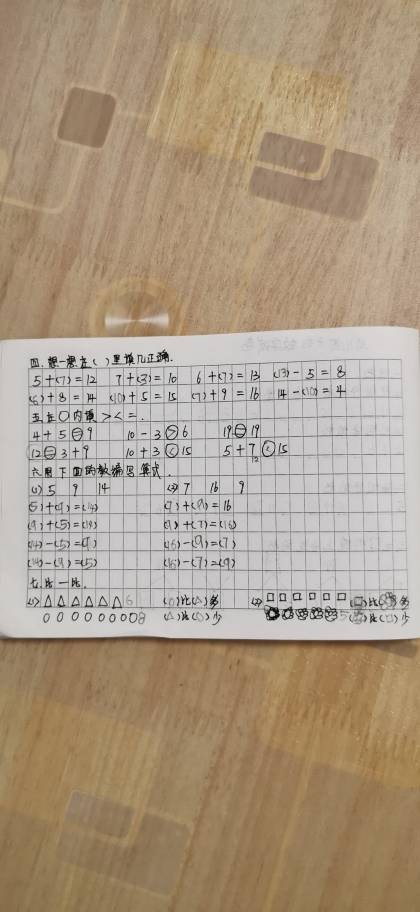 四.想一想在( )里填几正确.
5+(7)=12 7+(3)=10 6+(7)=13 (13)-5=8
(6)+8=14 (10)+5=15 (7)+9=16 14-(10)=4
五在○内填><=.
4+5=9 10-3>6 19=19
12=3+9 10+3<15 5+7<15
12
六用下面的数编写算式.
(1) 5 9 14 (2) 7 16 9
(5)+(9)=(14) (7)+(9)=16
(9)+(5)=(14) (9)+(7)=(16)
(14)-(5)=(9) (16)-(9)=(7)
(14)-(9)=(5) (16)-(7)=(9)
七.比一比.
(1)△△△△△△6 (○)比(△)多 (2)□□□□□□ 比 多
○○○○○○○○8 (△)比(○)少 5 比(□)少